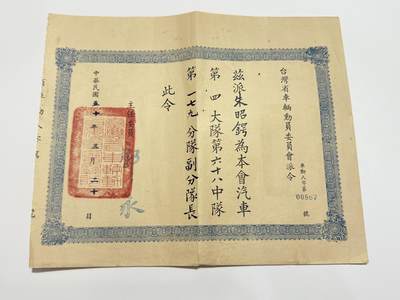 台灣省車輛動員委員會派令
車動人字第
00967號
茲派朱昭鍔為本會汽車
第四大隊第六十八中隊
第一七九分隊副分隊長
此令
主任委員
中華民國五十年三月二十日